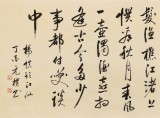 髮漁樵江渚上
慣看秋月春風
一壺濁酒喜
逢古今多少
事都付笑談
中
楊慎臨江仙